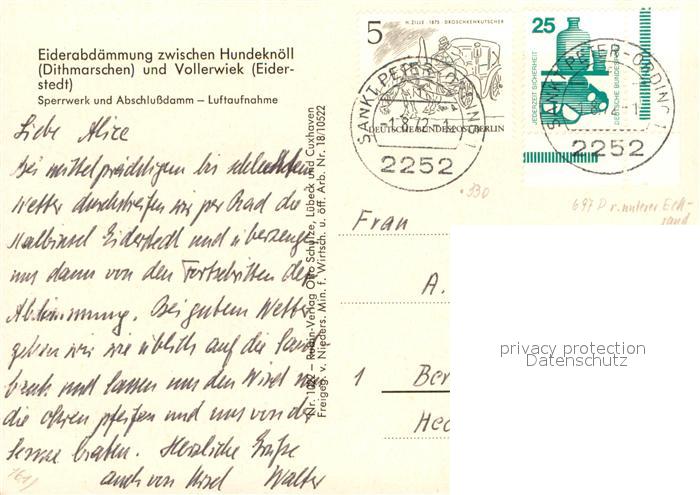 Eiderabdämmung zwischen Hundeknöll
(Dithmarschen) und Vollerwiek (Eider-
stedt)
Sperrwerk und Abschlußdamm – Luftaufnahme
5
H. ZILLE · 1875 · DROSCHKENKUTSCHER
DEUTSCHE BUNDESPOST BERLIN
25
JEDERZEIT SICHERHEIT
DEUTSCHE BUNDESPOST
SANKT PETER-ORDING 1
-1.8.72-1
2252
SANKT PETER-ORDING 1
-1.8.72-1
2252
330
697 D r. unterer Eck-
rand
Liebe Alice
Bei mittelprächtigem bis schlechtem
Wetter durchstreifen wir per Rad die
Halbinsel Eiderstedt und überzeugen
uns dann von den Fortschritten der
Abdämmung. Bei gutem Wetter
gehen wir wie üblich auf die Sand
bank und lassen uns den Wind um
die Ohren pfeifen und uns von der
Sonne braten. Herzliche Grüße
auch von Ursel Walter
Nr. 1022 – Rubin-Verlag Otto Schulze, Lübeck und Cuxhaven
Freigeg. v. Nieders. Min. f. Wirtsch. u. öff. Arb. Nr. 18/10522
Frau
A.
1 Ber
Hec
privacy protection
Datenschutz